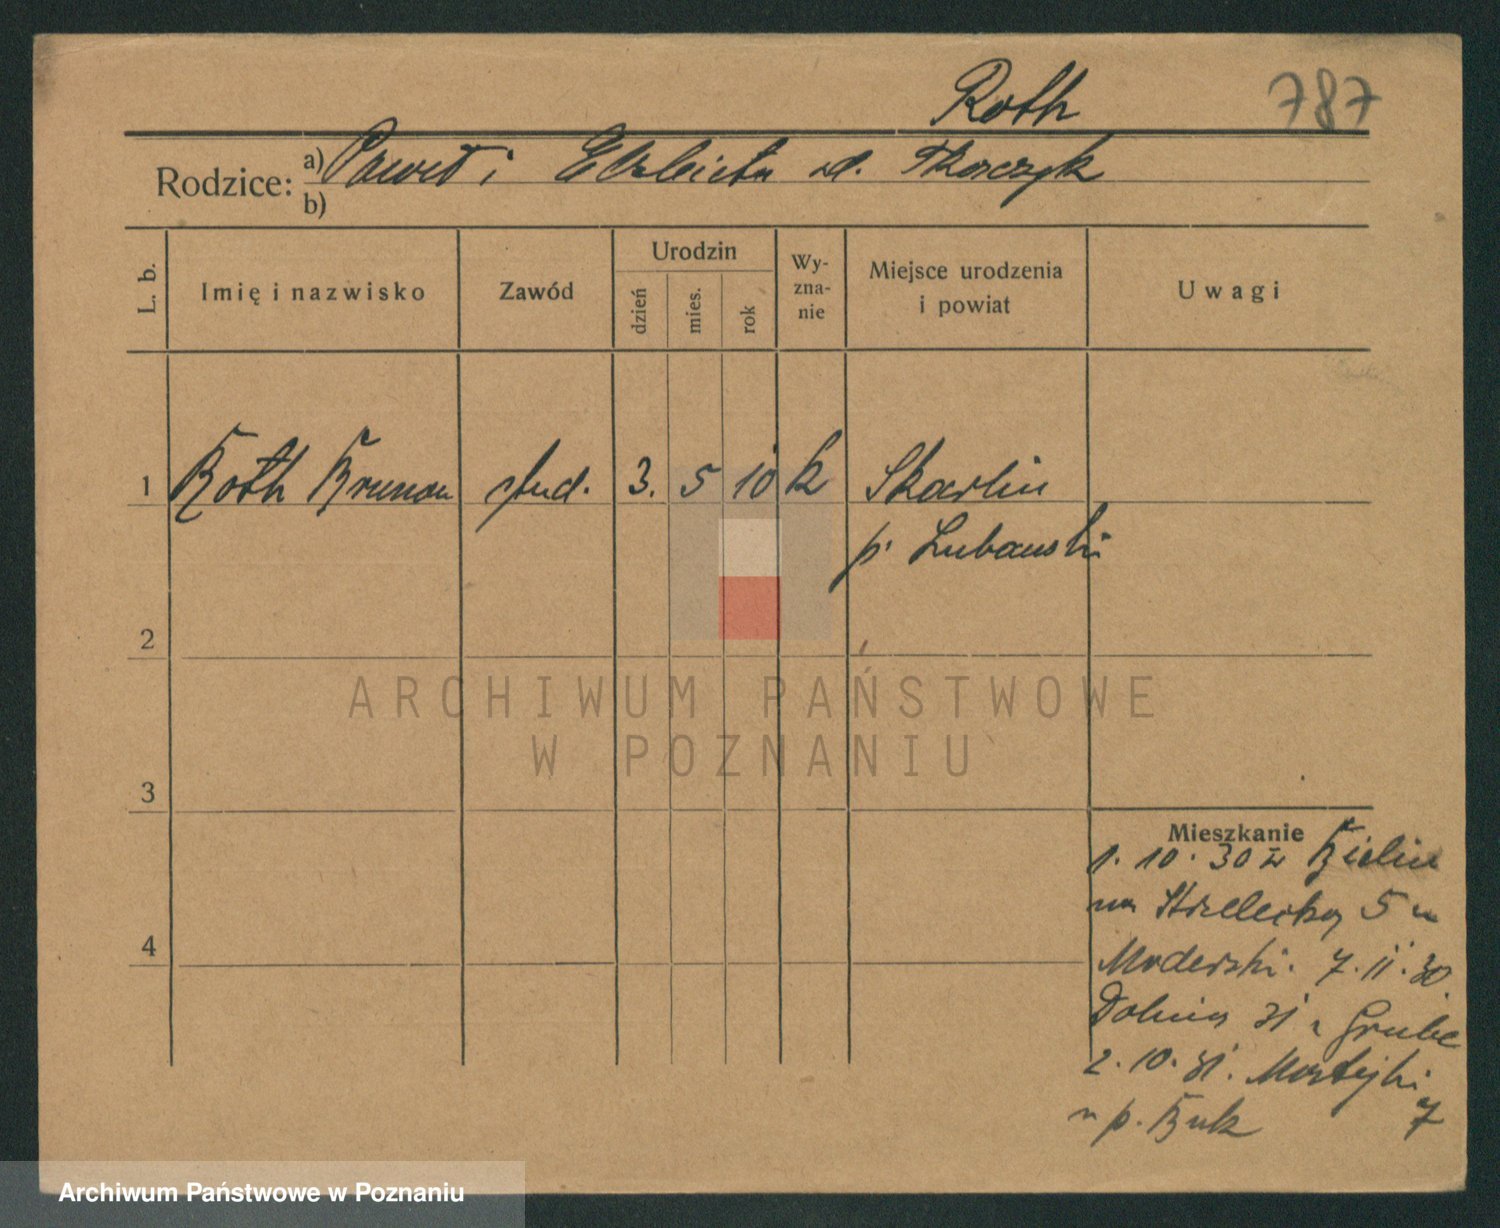 Roth 787
Rodzice: a) Paweł i Elżbieta zd. Tkaczyk
b)
L. b. Imię i nazwisko Zawód Urodzin dzień mies. rok Wyznanie Miejsce urodzenia i powiat Uwagi
1 Roth Brunon stud. 3. 5 10 k Skarlin
p. Lubawski
2
ARCHIWUM PAŃSTWOWE
W POZNANIU
3
Mieszkanie
1. 10. 30 z Bielin
na Strzelecka 5 u
4
Moderski. 7. 11. 30.
Dolina 31 u Grube
2. 10. 31. Matejki
u p. Buk 7
Archiwum Państwowe w Poznaniu